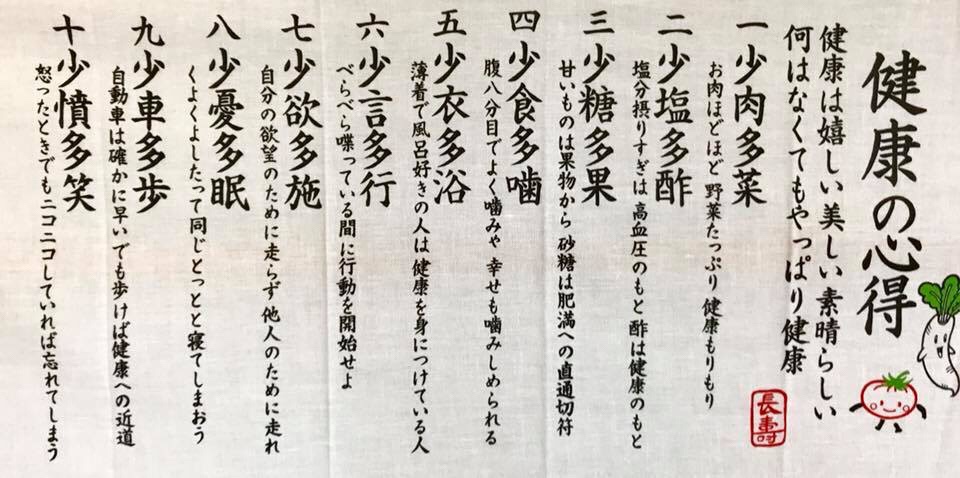 健康の心得
健康は嬉しい美しい素晴らしい
何はなくてもやっぱり健康
一少肉多菜
お肉ほどほど 野菜たっぷり 健康もりもり
二少塩多酢
塩分摂りすぎは 高血圧のもと 酢は健康のもと
三少糖多果
甘いものは果物から 砂糖は肥満への直通切符
四少食多噛
腹八分目でよく噛みゃ 幸せも噛みしめられる
五少衣多浴
薄着で風呂好きの人は 健康を身につけている人
六少言多行
べらべら喋っている間に行動を開始せよ
七少欲多施
自分の欲望のために走らず 他人のために走れ
八少憂多眠
くよくよしたって同じとっとと寝てしまおう
九少車多歩
自動車は確かに早いでも歩けば健康への近道
十少憤多笑
怒ったときでもニコニコしていれば忘れてしまう
長寿村